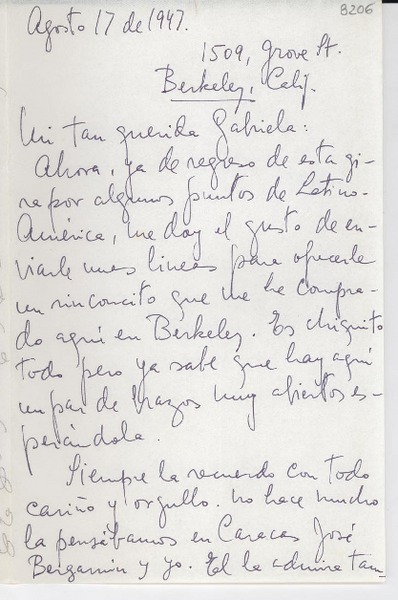 8206
Agosto 17 de 1947.
1509, Grove St.
Berkeley, Calif.
Mi tan querida Gabriela:
Ahora, ya de regreso de esta gi-
ra por algunos puntos de Latino-
América, me doy el gusto de en-
viarle unas líneas para ofrecerle
un rinconcito que me he compra-
do aquí en Berkeley. Es chiquito
todo pero ya sabe que hay aquí
un par de brazos muy abiertos es-
perándola.
Siempre la recuerdo con todo
cariño y orgullo. No hace mucho
la pensábamos en Caracas José
Bergamín y yo. El la admira tan